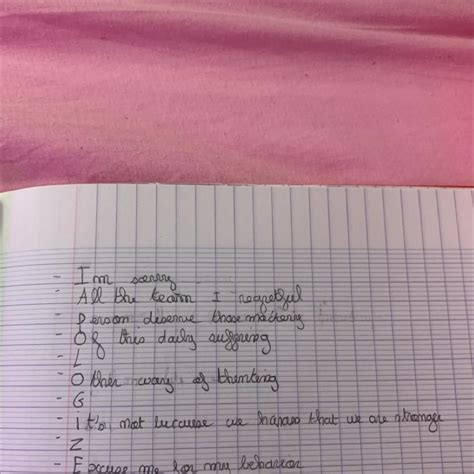 - Im sorry
- All the team I regretful
- Person deserve those mockery
- Of this daily suffering
- L
- Other ways of thinking
- G
- It's not because we harass that we are stronger
- Z
- Excuse me for my behavior